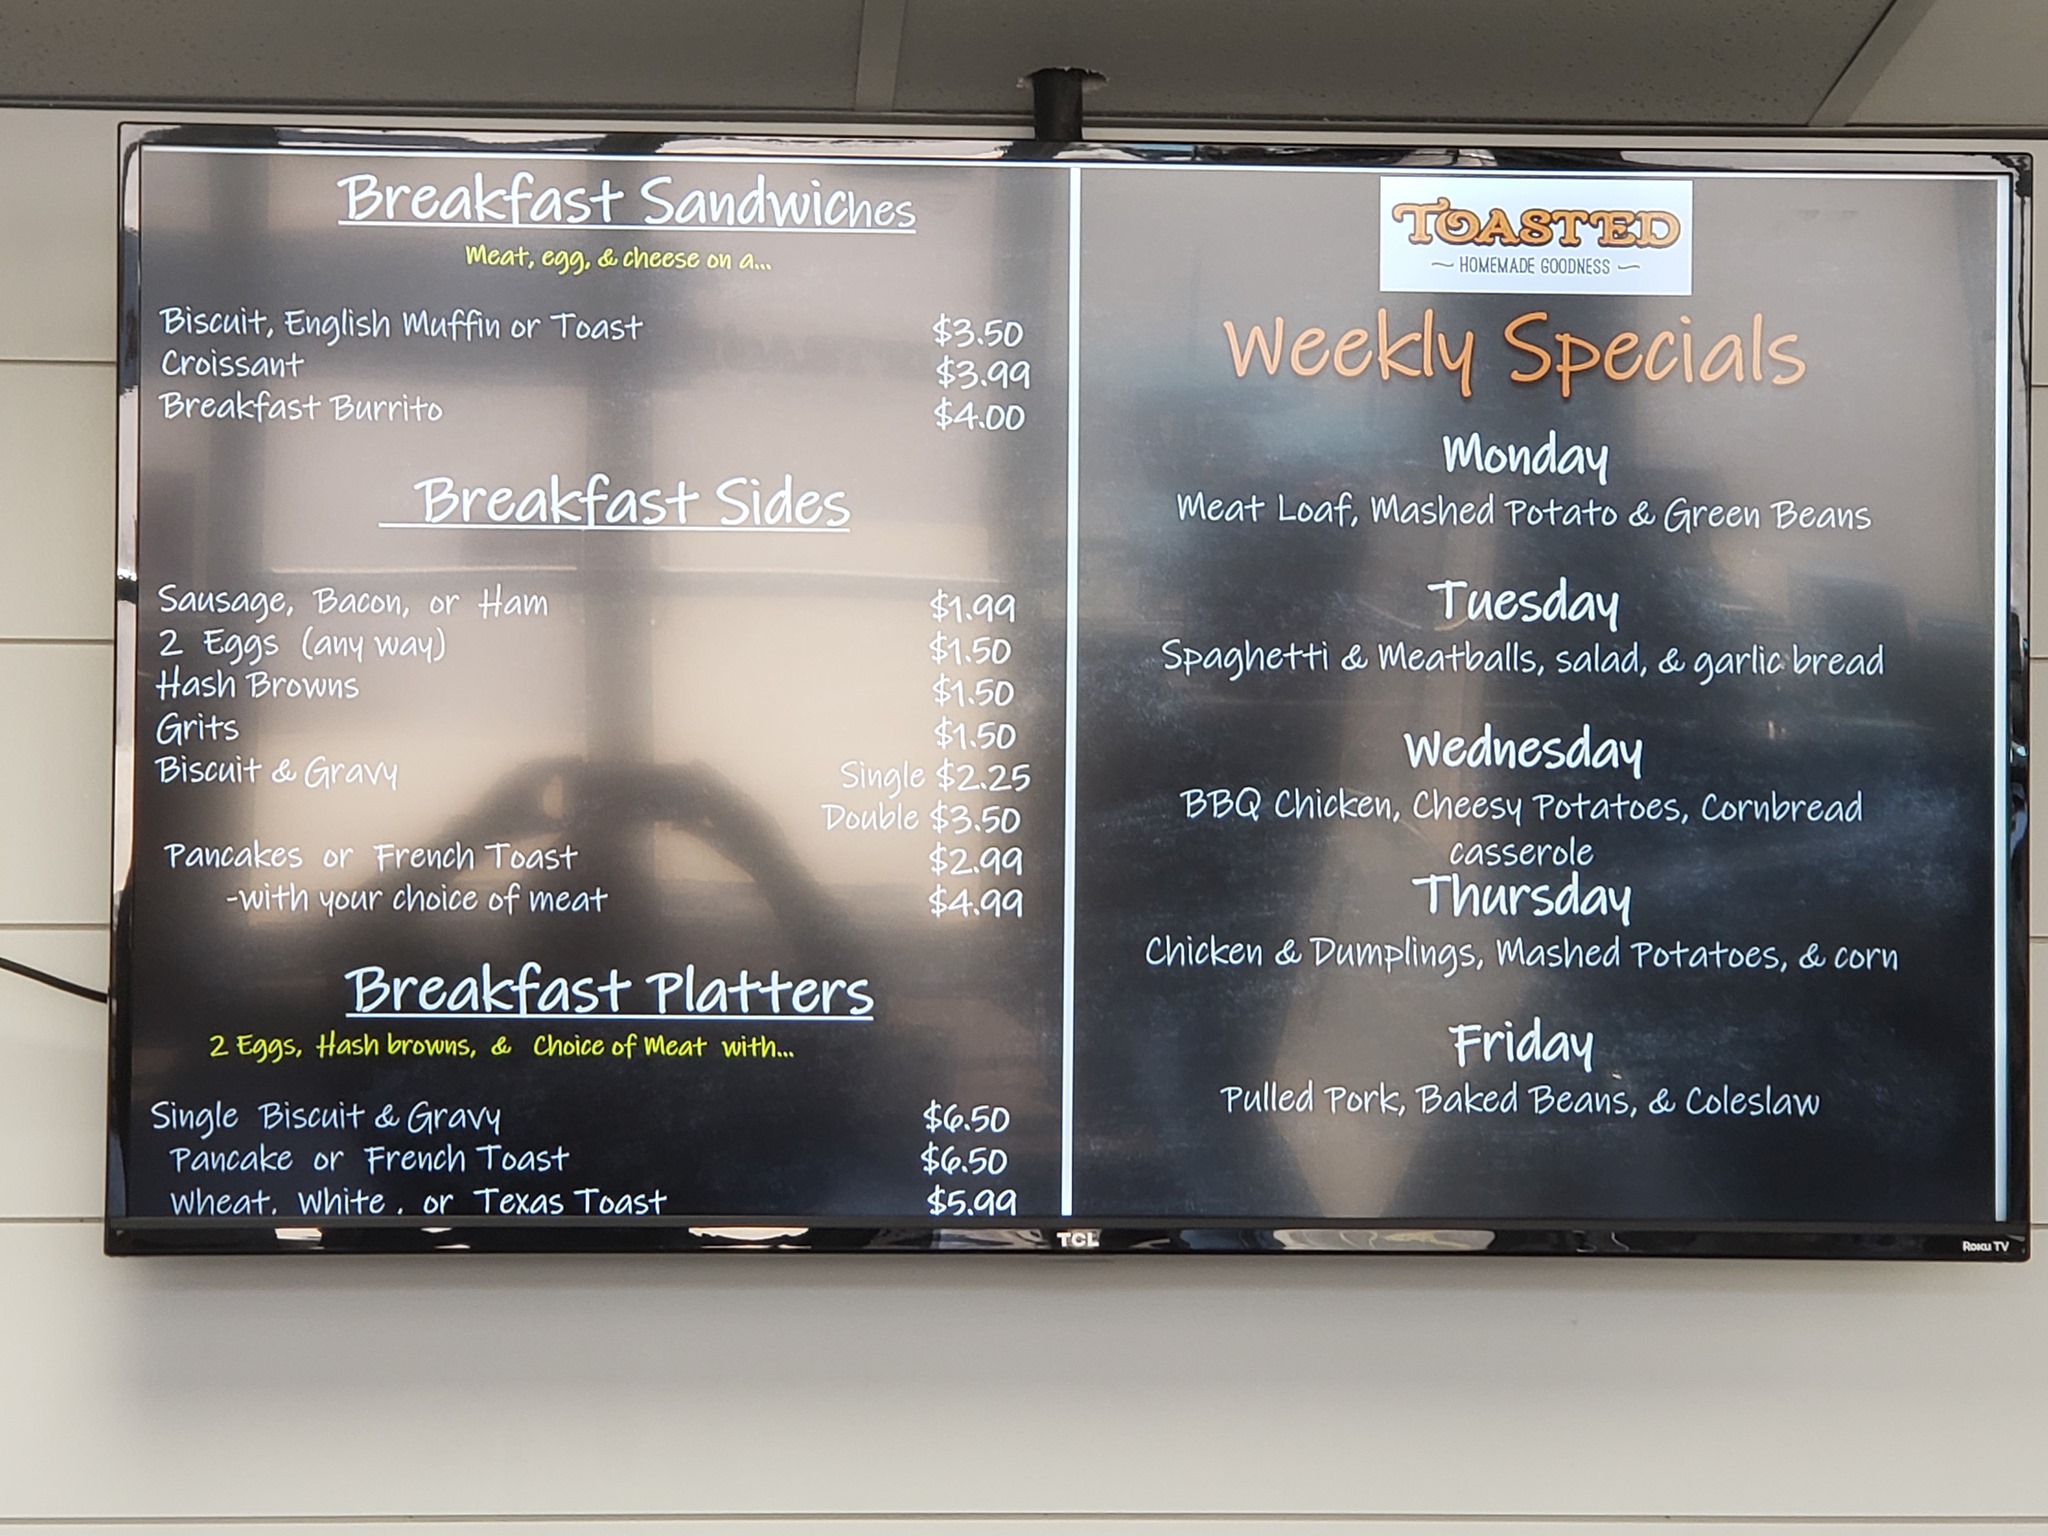 Breakfast Sandwiches
Meat, egg, & cheese on a...
Biscuit, English Muffin or Toast $3.50
Croissant $3.99
Breakfast Burrito $4.00
Breakfast Sides
Sausage, Bacon, or Ham $1.99
2 Eggs (any way) $1.50
Hash Browns $1.50
Grits $1.50
Biscuit & Gravy Single $2.25
Double $3.50
Pancakes or French Toast $2.99
-with your choice of meat $4.99
Breakfast Platters
2 Eggs, Hash browns, & Choice of Meat with...
Single Biscuit & Gravy $6.50
Pancake or French Toast $6.50
Wheat, White, or Texas Toast $5.99
TOASTED
HOMEMADE GOODNESS
Weekly Specials
Monday
Meat Loaf, Mashed Potato & Green Beans
Tuesday
Spaghetti & Meatballs, salad, & garlic bread
Wednesday
BBQ Chicken, Cheesy Potatoes, Cornbread
casserole
Thursday
Chicken & Dumplings, Mashed Potatoes, & corn
Friday
Pulled Pork, Baked Beans, & Coleslaw
TCL
Roku TV